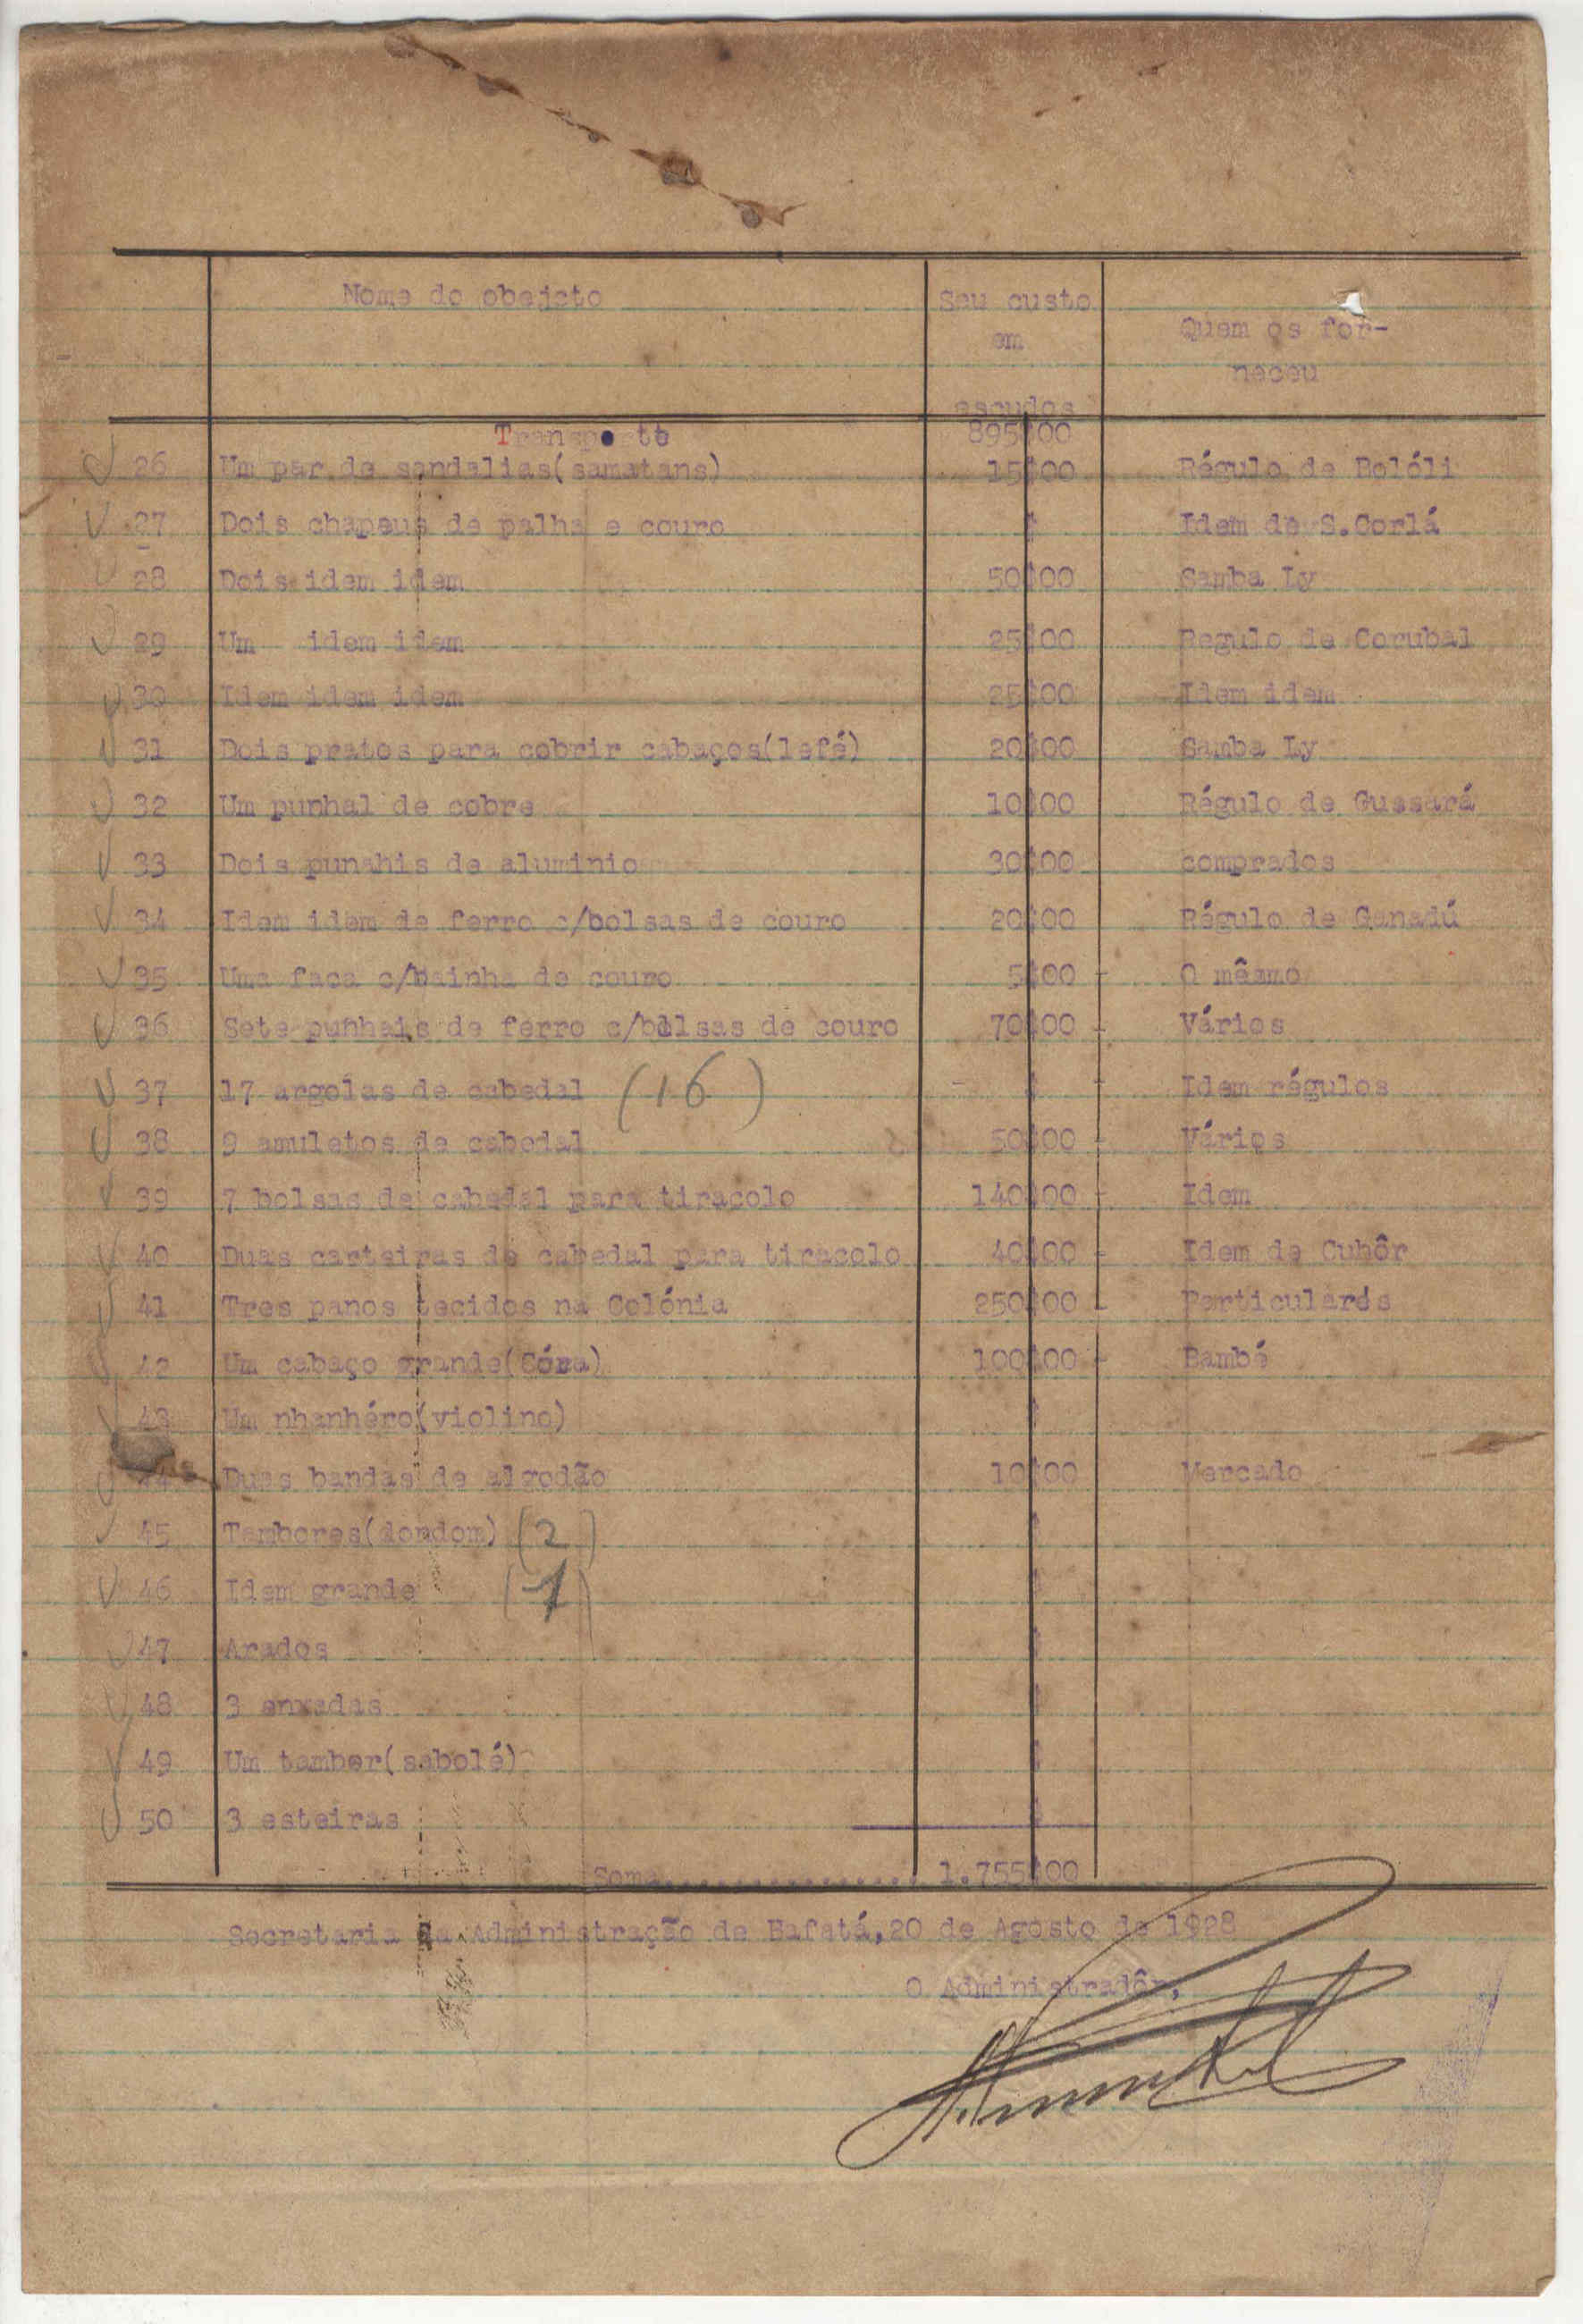 Nome do obejcto Seu custo em escudos Quem os for-neceu
Transporte 895$00
26 Um par de sandalias(samatans) 15$00 Régulo de Bolóli
27 Dois chapeus de palha e couro $ Idem de S.Corlá
28 Dois idem idem 50$00 Samba Ly
29 Um idem idem 25$00 Regulo de Corubal
30 Idem idem idem 25$00 Idem idem
31 Dois pratos para cobrir cabaços(lefé) 20$00 Samba Ly
32 Um punhal de cobre 10$00 Régulo de Gussará
33 Dois punahis de aluminio 30$00 comprados
34 Idem idem de ferro c/bolsas de couro 20$00 Régulo de Ganadú
35 Uma faca c/bainha de couro 5$00 O mêsmo
36 Sete punhais de ferro c/bolsas de couro 70$00 Vários
37 17 argolas de cabedal (16) $ Idem régulos
38 9 amuletos de cabedal 50$00 Vários
39 7 bolsas de cabedal para tiracolo 140$00 Idem
40 Duas carteiras de cabedal para tiracolo 40$00 Idem de Cuhôr
41 Tres panos tecidos na Colónia 250$00 Particulares
42 Um cabaço grande(Córa) 100$00 Bambé
43 Um nhanhéro(violino) $
44 Duas bandas de algodão 10$00 Mercado
45 Tambores(dondom) (2) $
46 Idem grande (1) $
47 Arados $
48 3 enxadas $
49 Um tambor(sabolé) $
50 3 esteiras $
Soma................ 1.755$00
Secretaria da Administração de Bafatá,20 de Agosto de 1928
O Administradôr,